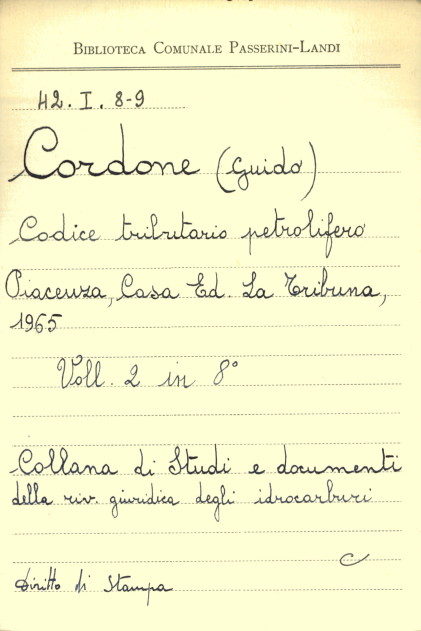 BIBLIOTECA COMUNALE PASSERINI-LANDI
42. I. 8-9
Cordone (Guido)
Codice tributario petrolifero
Piacenza, Casa Ed. La Tribuna,
1965
Voll. 2 in 8°
Collana di Studi e documenti
della riv. giuridica degli idrocarburi
C
Diritto di Stampa